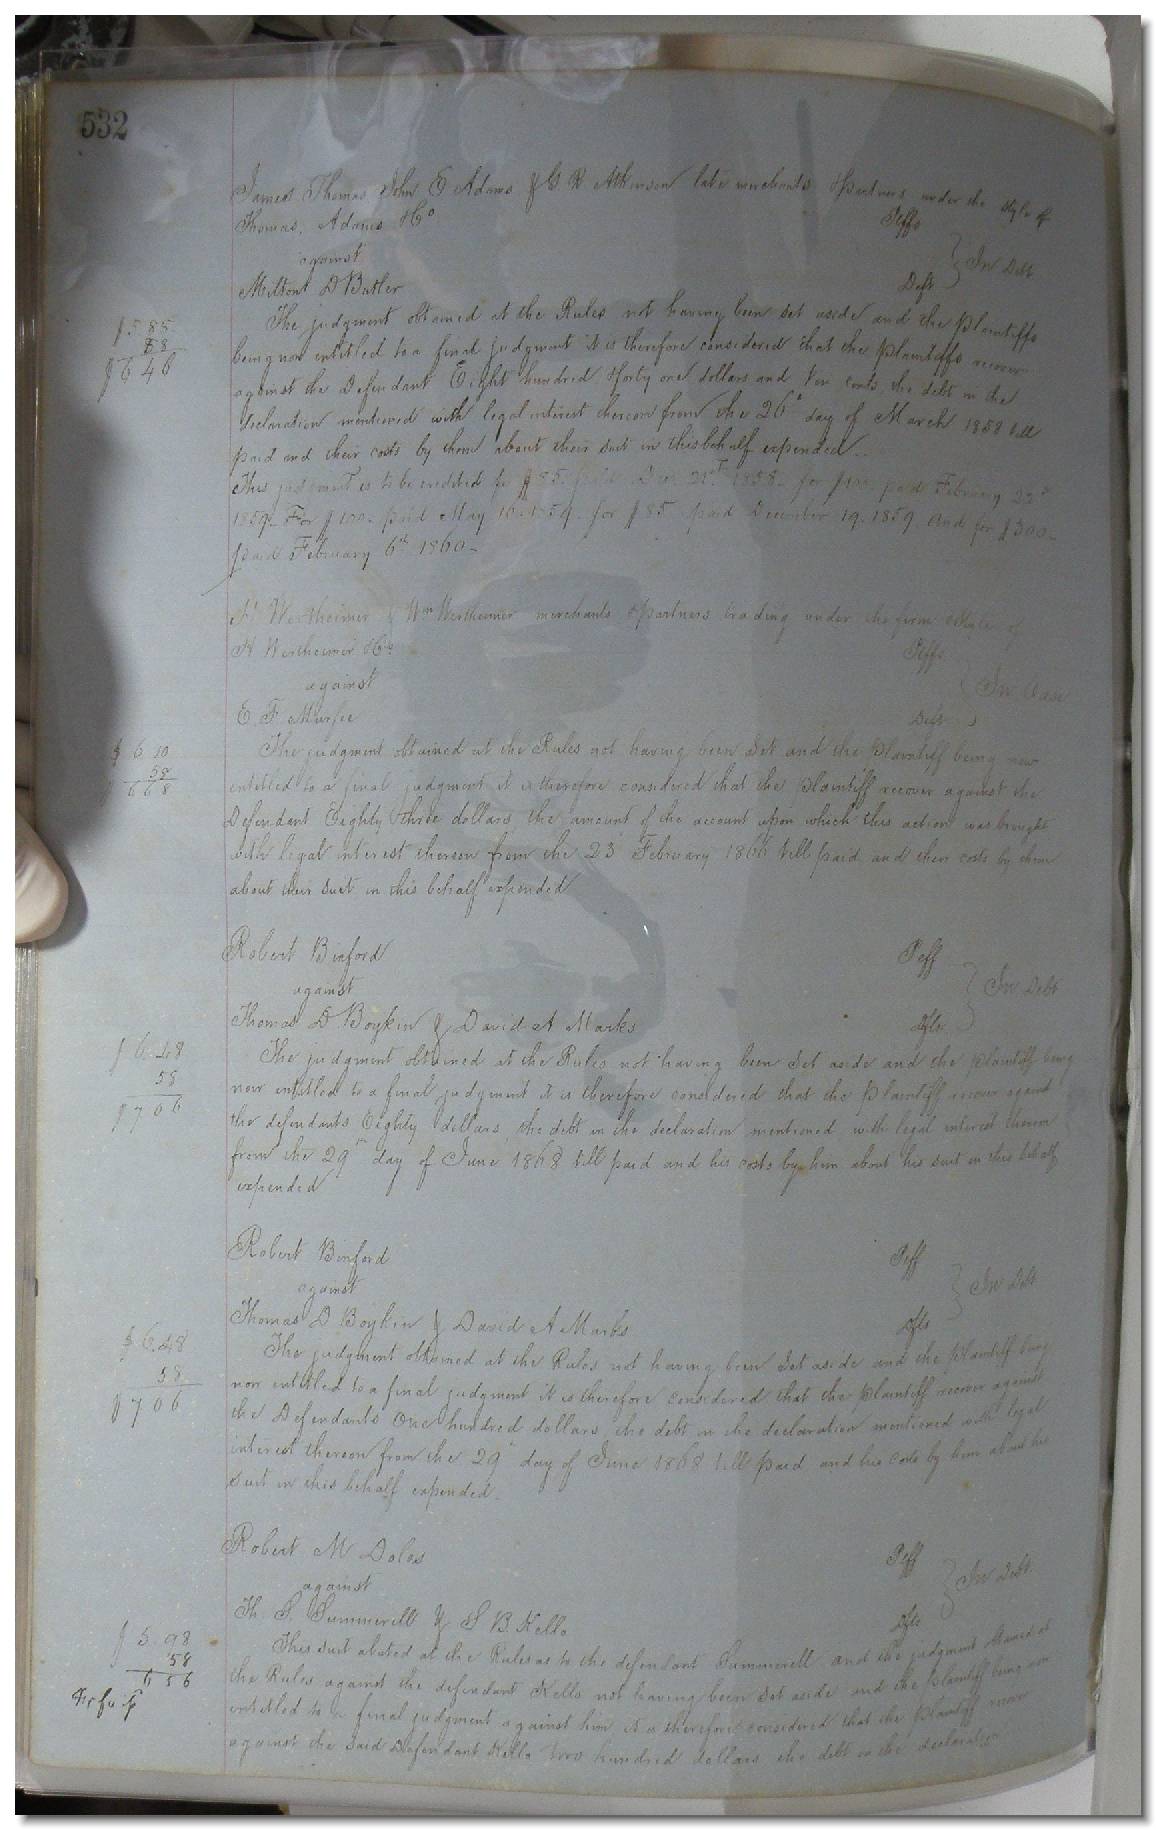 532
James Thomas John E Adams & G R Atkinson late merchants & partners under the style of
Thomas, Adams & Co Plffs
against } In Debt
Miltont D Butler Deft
The judgment obtained at the Rules not having been set aside and the Plaintiffs
$5.85
58
$6 46
being now entitled to a final judgment it is therefore considered that the Plaintiffs recover
against the Defendant Eight hundred & forty one dollars and ten cents, the debt in the
declaration mentioned with legal interest thereon from the 26" day of March 1858 till
paid and their costs by them about their suit in this behalf expended..
This judgment is to be credited for $85. paid Dec. 21st 1858. for $100. paid February 22d
1859. For $100. paid May 10. 1859. for $85 paid December 19. 1859 and for $300-
paid February 6th 1860-
H Wertheimer & Wm Wertheimer merchants & partners trading under the firm & style of
H Wertheimer & Co Plffs
against } In Case
E. F. Murfee Deft
The judgment obtained at the Rules not having been set and the Plaintiff being now
$ 6 10
58
6 6 8
entitled to a final judgment it is therefore considered that the Plaintiff recover against the
Defendant Eighty three dollars, the amount of the account upon which this action was brought
with legal interest thereon from the 23 February 1866 till paid and their costs by them
about their suit in this behalf expended
Robert Binford Plff
against } In Debt
Thomas D Boykin & David A Marks Dfts.
The judgment obtained at the Rules not having been set aside and the Plaintiff being
$ 6.48
58
$ 7 0 6
now entitled to a final judgment it is therefore considered that the Plaintiff recover against
the defendants Eighty dollars, the debt in the declaration mentioned with legal interest thereon
from the 29" day of June 1868 till paid and his costs by him about his suit in this behalf
expended
Robert Binford Plff
against } In Debt
Thomas D Boykin & David A Marks Dfts
The judgment obtained at the Rules not having been set aside and the Plaintiff being
$ 6.48
58
$ 7 0 6
now entitled to a final judgment it is therefore considered that the Plaintiff recover against
the Defendants One hundred dollars, the debt in the declaration mentioned with legal
interest thereon from the 29" day of June 1868 till paid and his costs by him about his
suit in this behalf expended.
Robert M Doles Plff
against } In Debt.
Th. S. Summerill & S B. Kello Dfts
This suit abated at the Rules as to the defendant Summerill and the judgment obtained at
$ 5.98
58
6 56
the Rules against the defendant Kello not having been set aside and the Plaintiff being now
entitled to a final judgment against him it is therefore considered that the Plaintiff recover
against the said Defendant Kello two hundred dollars the debt in the declaration